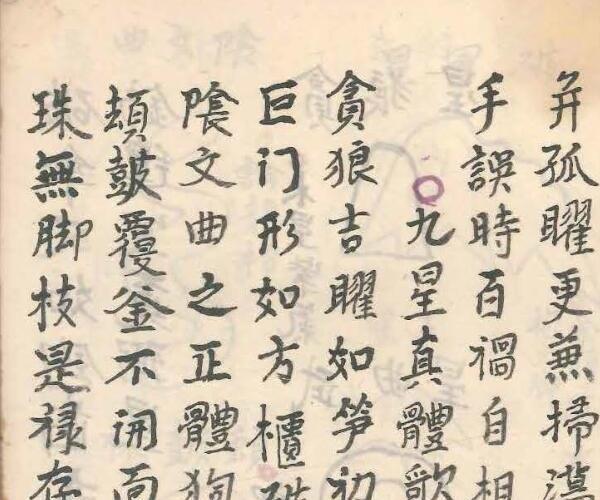 并孤曜更兼掃
手誤時百禍自相
九星真體歌
貪狼吉曜如笋初
巨门形如方櫃
隂文曲之正體
皷覆釜不面
珠無脚枝是禄存